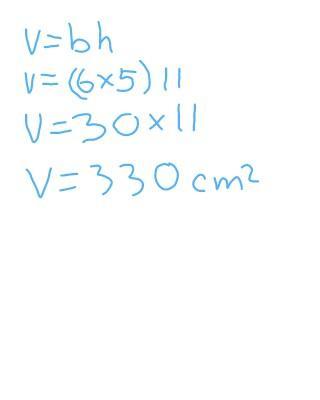 V=bh
V=(6×5)11
V=30×11
V=330 cm²